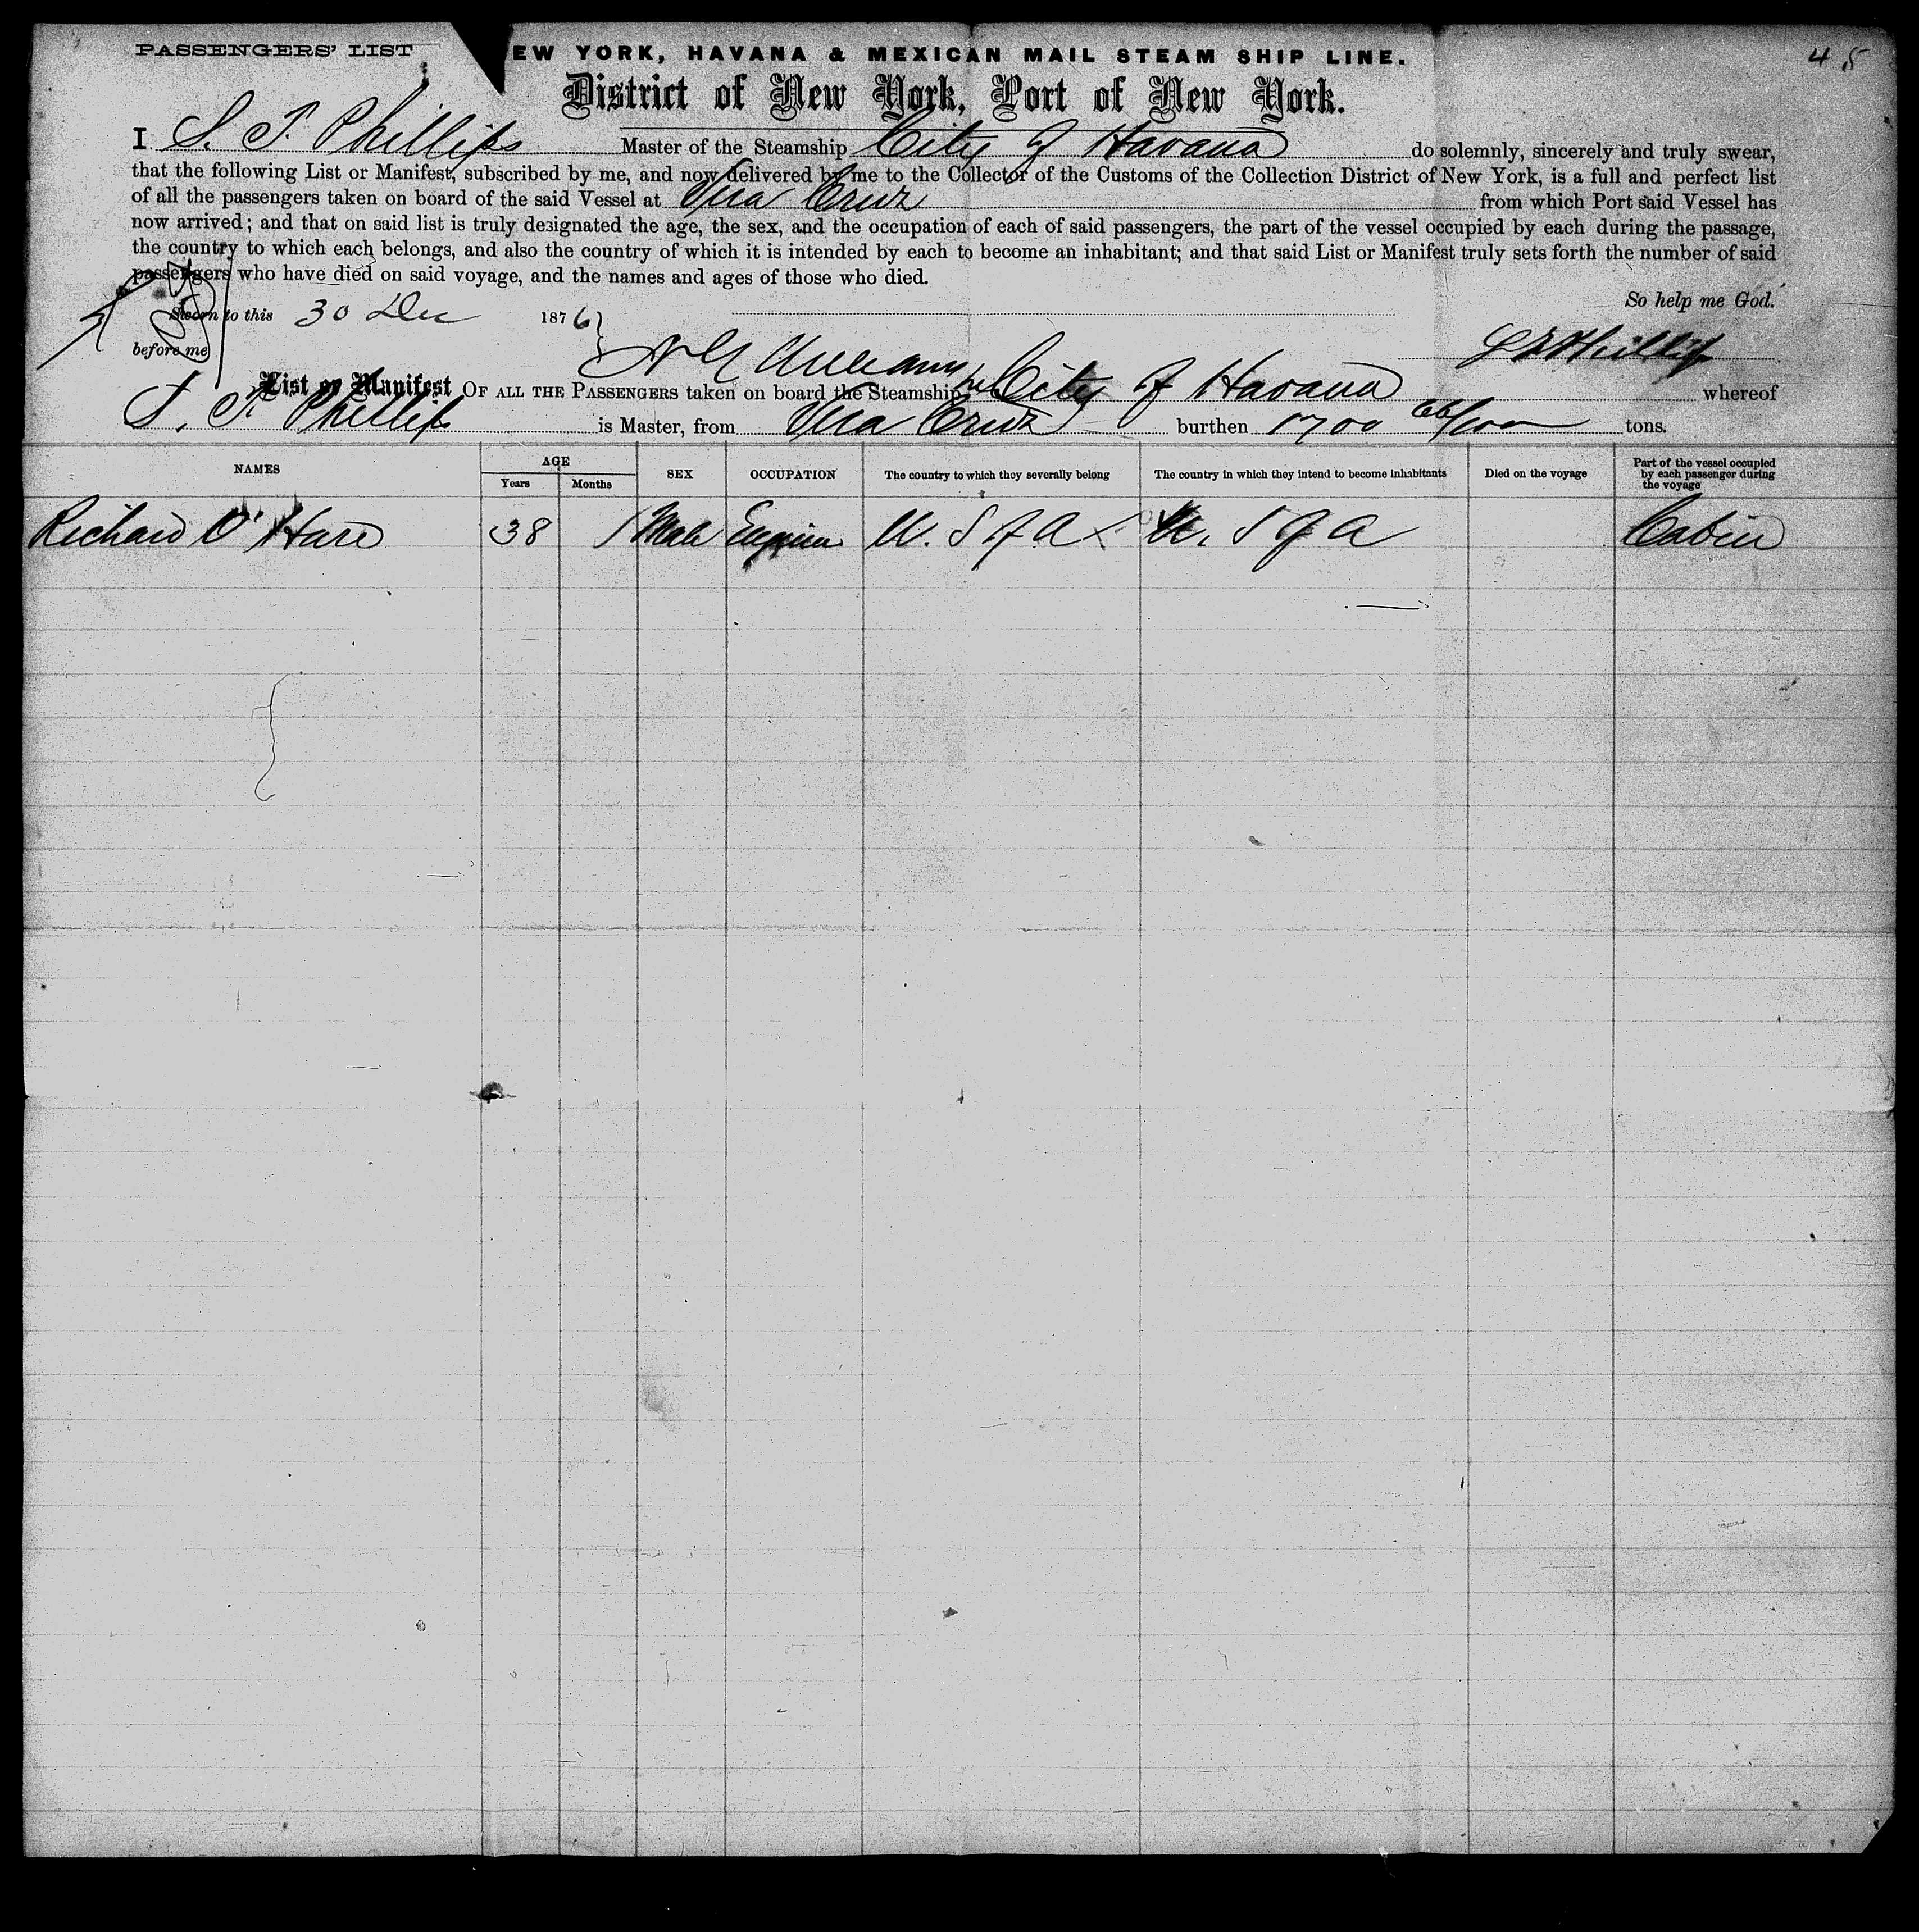 PASSENGERS' LIST
EW YORK, HAVANA & MEXICAN MAIL STEAM SHIP LINE.
45
District of New York, Port of New York.
I S. T. Phillips Master of the Steamship City of Havana do solemnly, sincerely and truly swear,
that the following List or Manifest, subscribed by me, and now delivered by me to the Collector of the Customs of the Collection District of New York, is a full and perfect list
of all the passengers taken on board of the said Vessel at Vera Cruz from which Port said Vessel has
now arrived; and that on said list is truly designated the age, the sex, and the occupation of each of said passengers, the part of the vessel occupied by each during the passage,
the country to which each belongs, and also the country of which it is intended by each to become an inhabitant; and that said List or Manifest truly sets forth the number of said
passengers who have died on said voyage, and the names and ages of those who died.
So help me God.
Sworn to this 30 Dec 1876
before me
S T Phillips
List or Manifest OF ALL THE PASSENGERS taken on board the Steamship City of Havana whereof
S. T. Phillips is Master, from Vera Cruz burthen 1700 66/100 tons.
NAMES AGE SEX OCCUPATION The country to which they severally belong The country in which they intend to become inhabitants Died on the voyage Part of the vessel occupied by each passenger during the voyage
Years Months
Richard O'Hare 38 Male Engineer U. S of A U. S of A Cabin